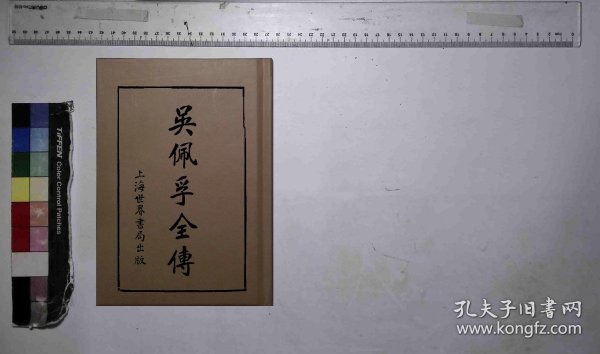 吳佩孚全傳
上海世界書局出版
TIFFEN Color Control Patches
孔夫子旧书网
www.kongfz.com